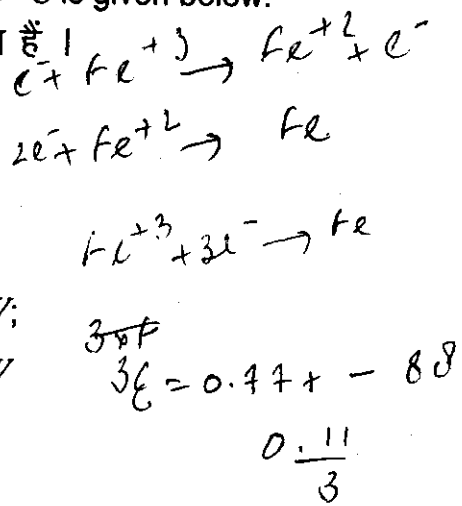 is given below.
है।
e⁻ + Fe⁺³ → Fe⁺² + e⁻
2e⁻ + Fe⁺² → Fe
Fe⁺³ + 3e⁻ → Fe
V;
3E = 0.77 + - 88
0.11
3